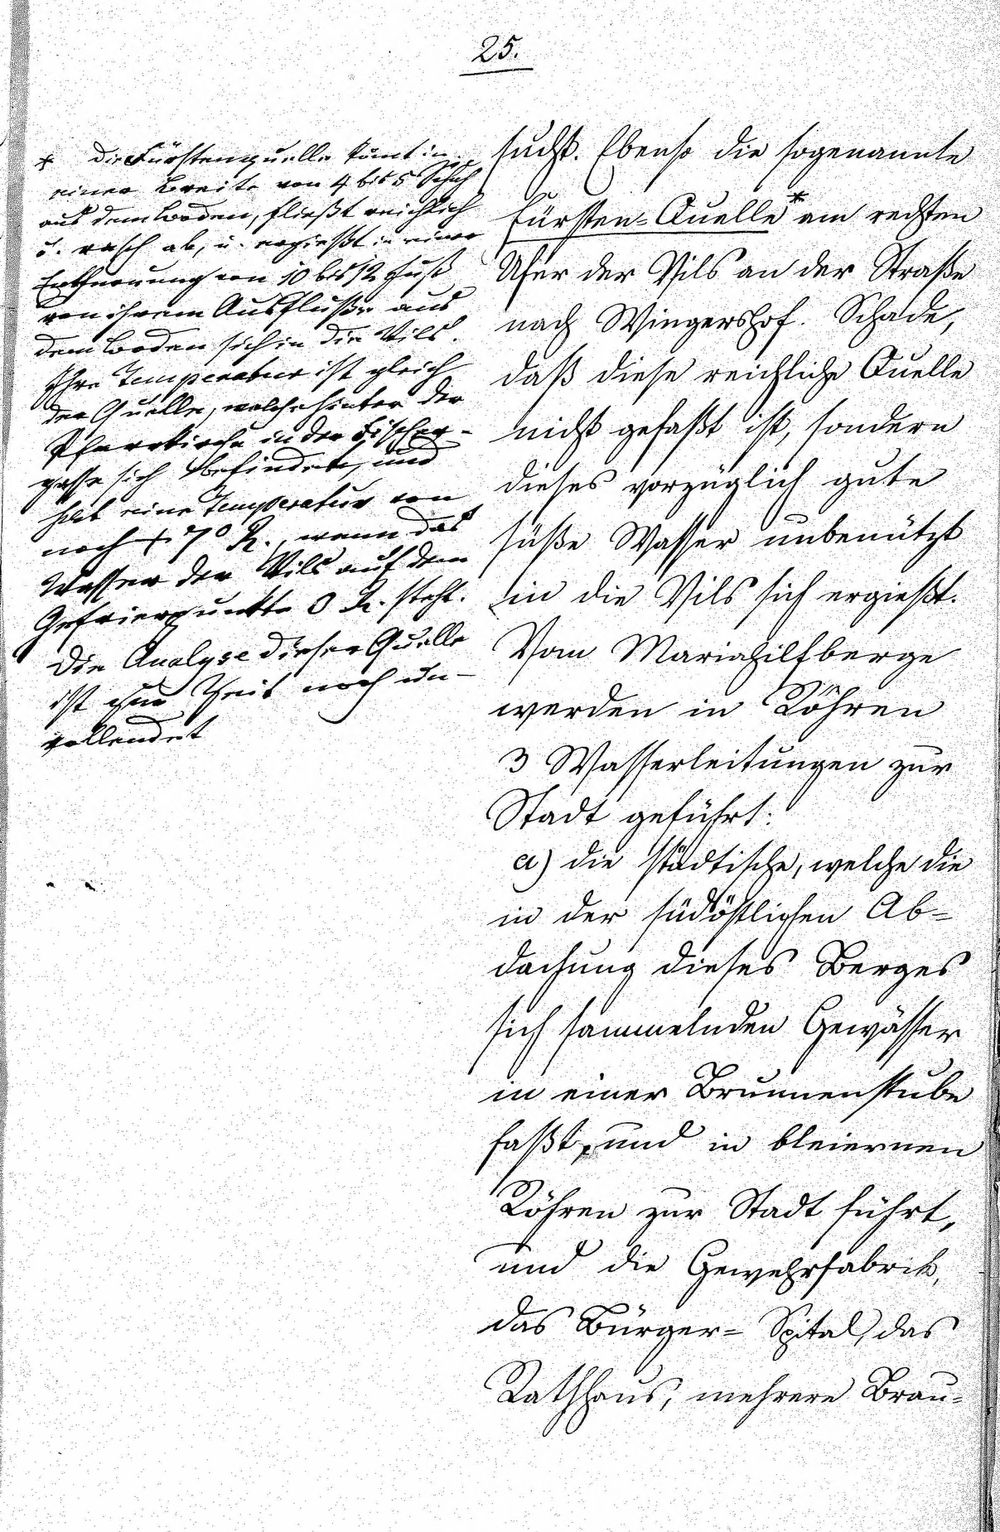 25.
* Die Fürstenquelle kömt in
einer Breite von 4 bis 5 Schuh
aus dem Boden, fließt reichlich
u. rasch ab, u. ergießt in einer
Entfernung von 10 bis 12 Fuß
von ihrem Ausfluße aus
dem Boden sich in die Vils.
Ihre Temperatur ist gleich
der Quelle, welche hinter der
Pfarrkirche in der Fischer-
gasse sich befindet, und
hat eine Temperatur von
noch + 7° R., wenn das
Wasser der Vils auf dem
Gefrierpunkte 0 R. steht.
Die Analyse dieser Quelle
ist zur Zeit noch un-
vollendet
sucht. Ebenso die sogenannte
Fürsten=Quelle* am rechten
Ufer der Vils an der Straße
nach Wingershof. Schade,
daß diese reichliche Quelle
nicht gefaßt ist, sondern
dieses vorzüglich gute
süße Wasser unbenützt
in die Vils sich ergießt.
Vom Mariahilfberge
werden in Röhren
3 Wasserleitungen zur
Stadt geführt:
a) die städtische, welche die
in der südöstlichen Ab=
dachung dieses Berges
sich sammelnden Gewässer
in einer Brunnenstube
faßt, und in bleiernen
Röhren zur Stadt führt,
und die Gewehrfabrik,
das Bürger= Spital, das
Rathhaus, mehrere Brau=